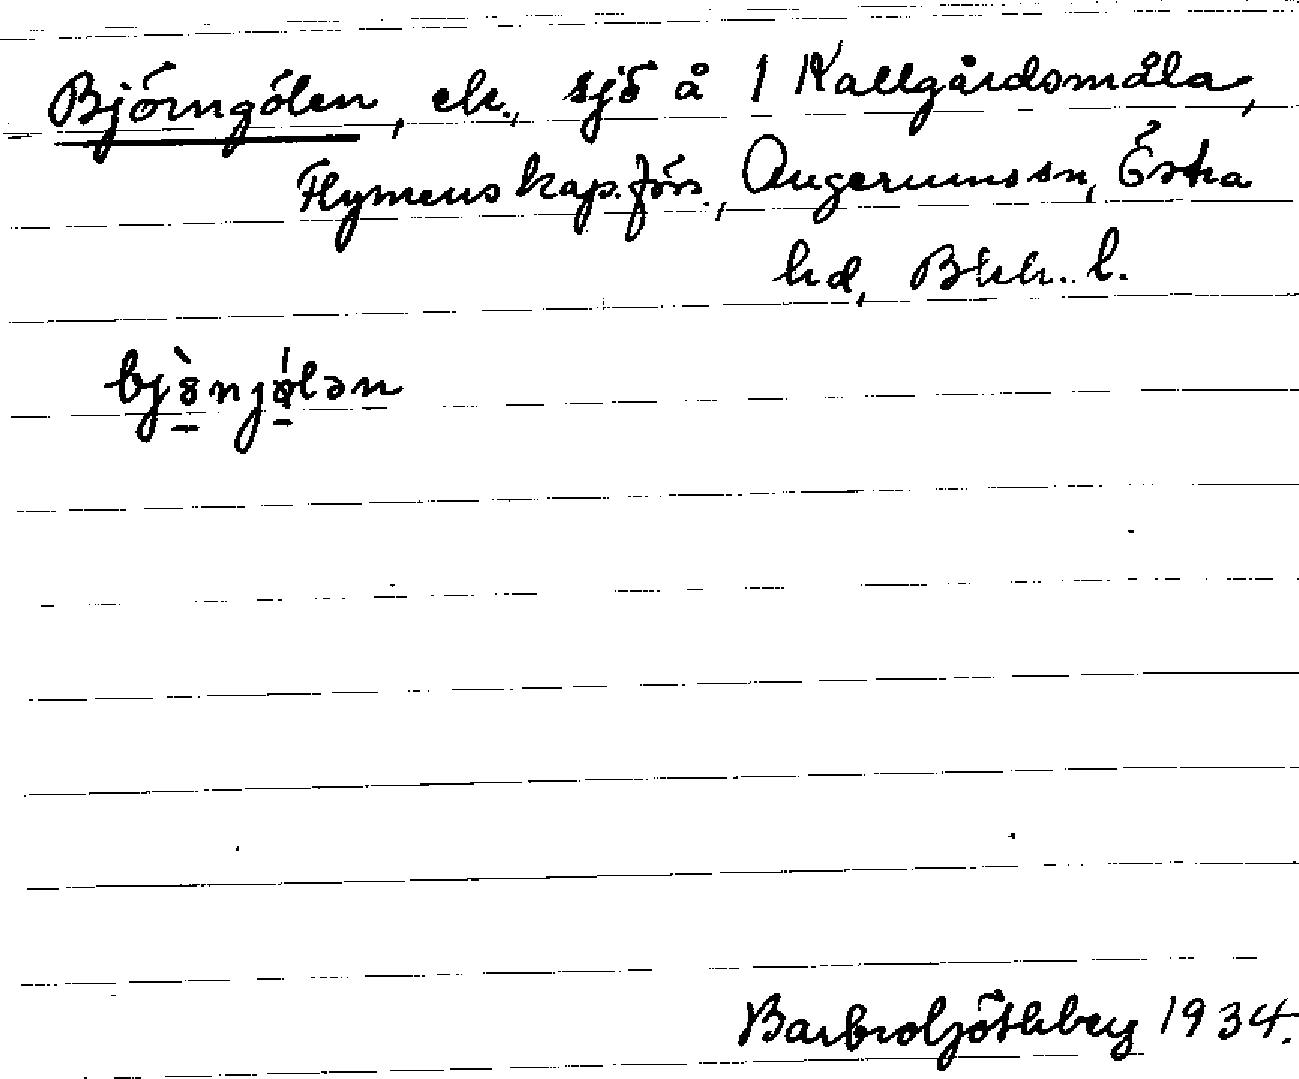 Björngölen, ek., sjö å 1 Kallgårdsmåla,
Flymens kap.förs., Augerums sn, Östra
hd, Blek. l.
Barbro Göthberg 1934.